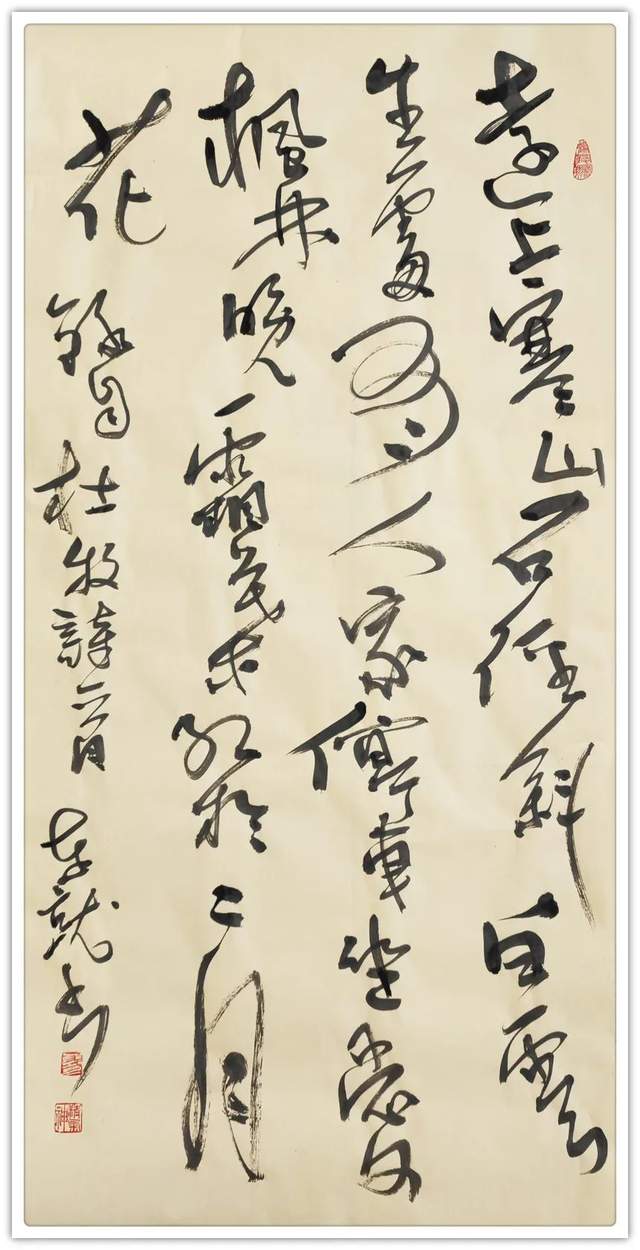 遠上寒山石徑斜白雲
生處有人家停車坐愛
楓林晚霜葉紅於二月
花 錄自杜牧詩 龍書